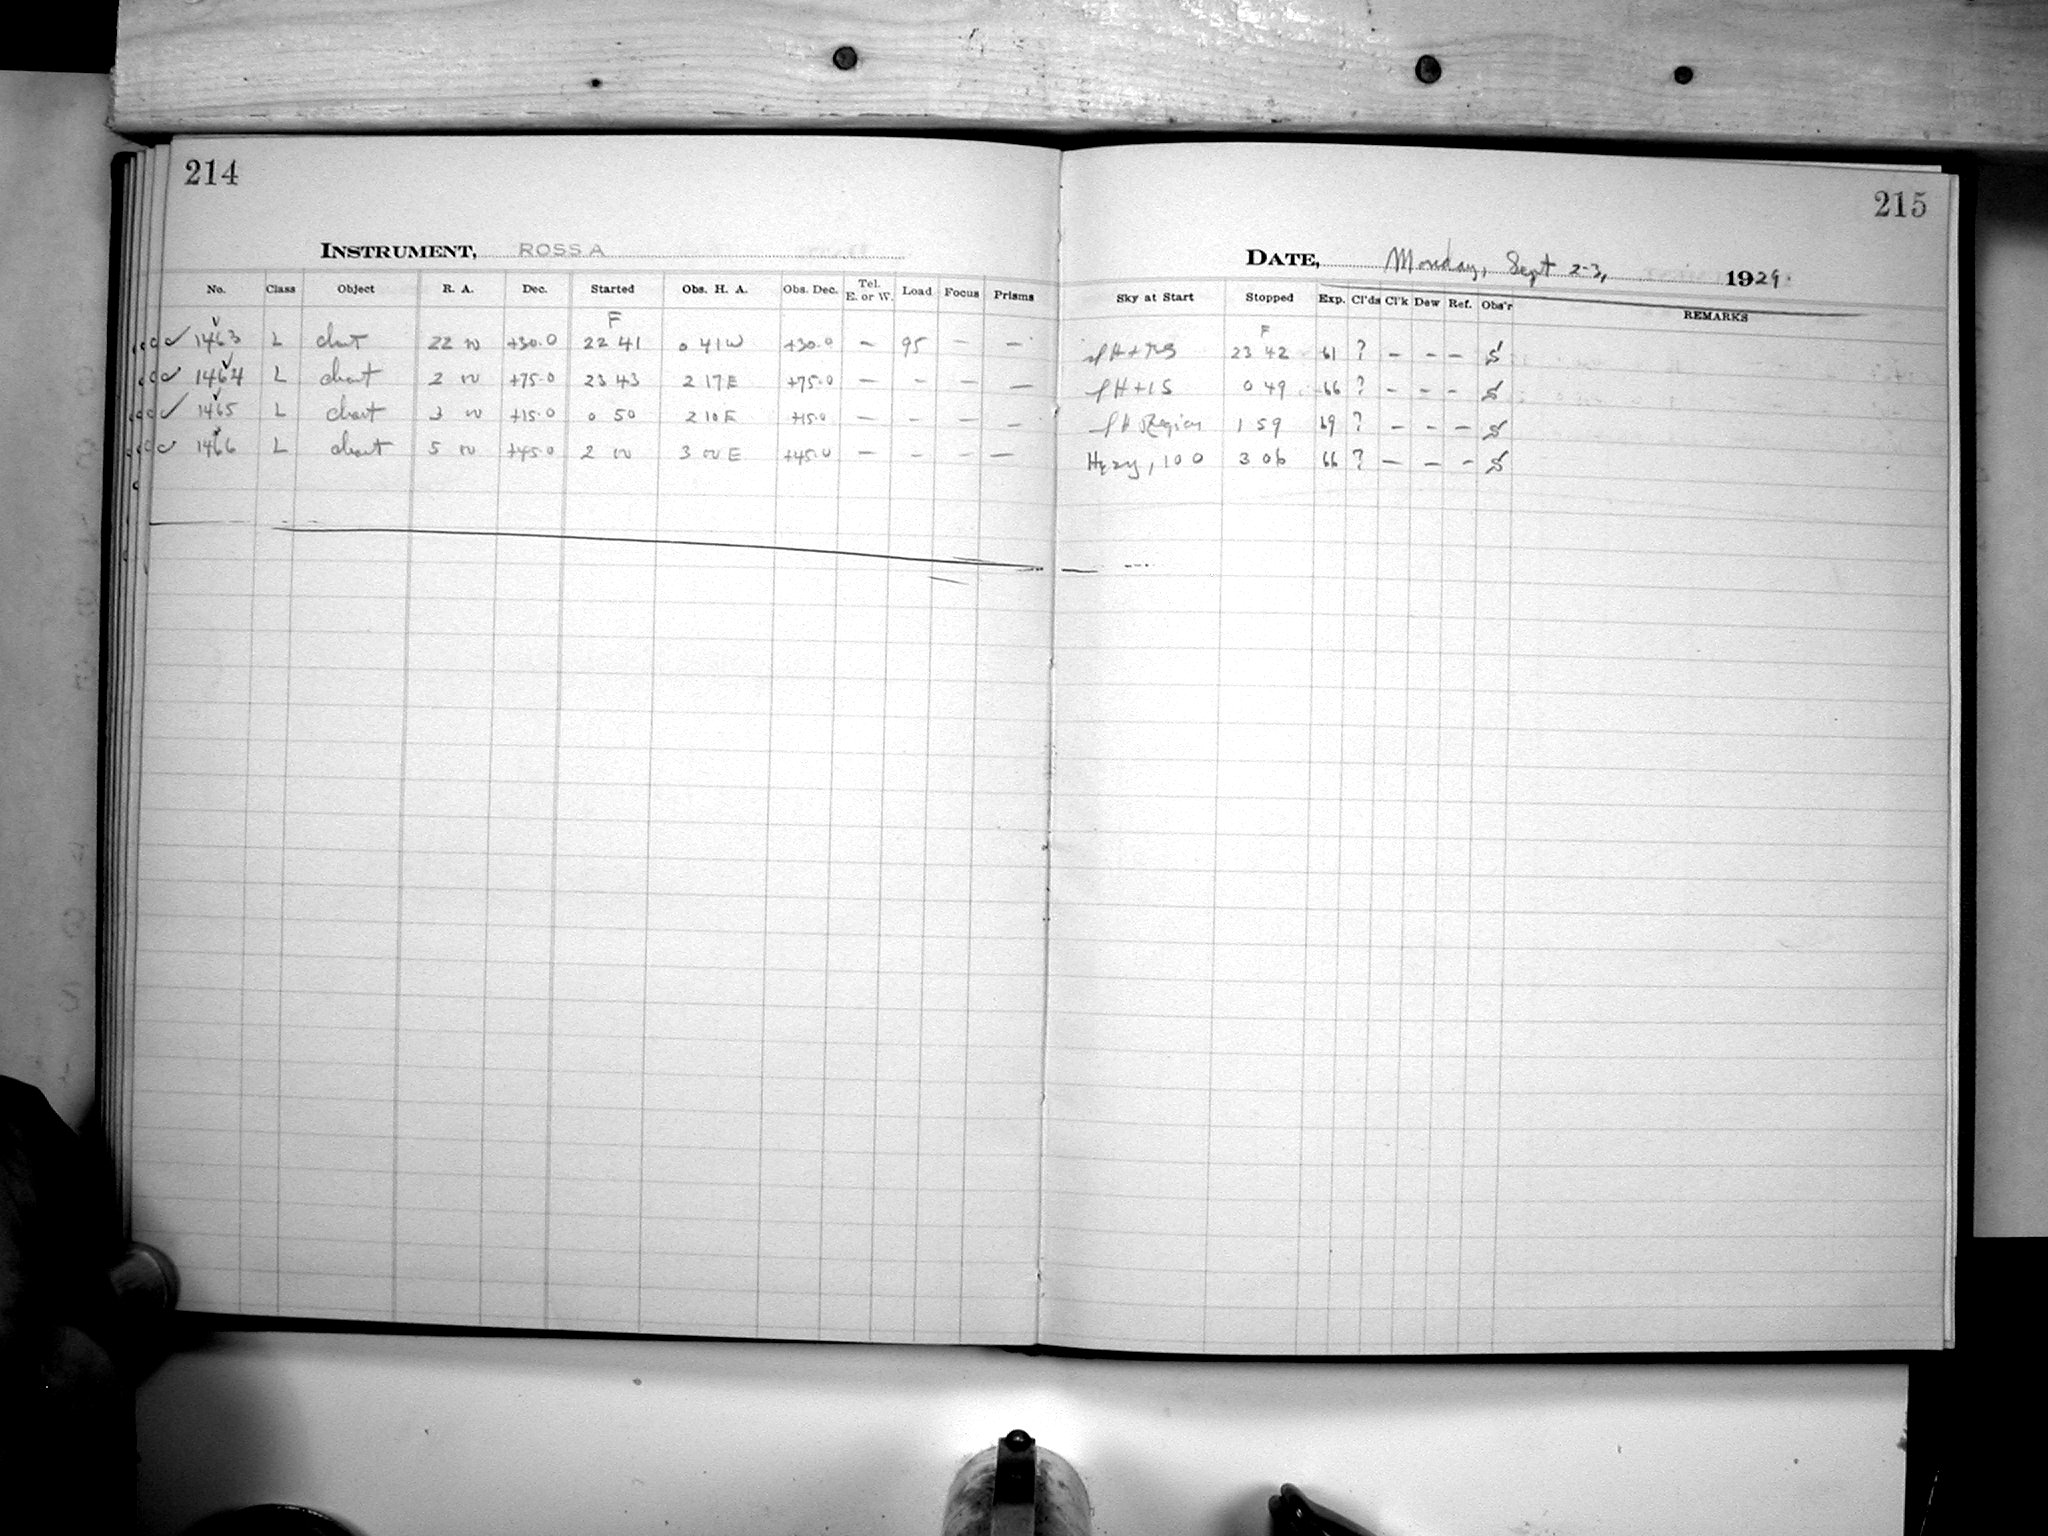 214
INSTRUMENT, ROSS A
No. Class Object R. A. Dec. Started Obs. H. A. Obs. Dec. Tel. E. or W. Load Focus Prisms
F
1463 L chart 22 00 +30.0 22 41 0 41 W +30.0 — 95 — —
1464 L chart 2 00 +75.0 23 43 2 17 E +75.0 — — — —
1465 L chart 3 00 +15.0 0 50 2 10 E +15.0 — — — —
1466 L chart 5 00 +45.0 2 00 3 00 E +45.0 — — — —
215
DATE, Monday, Sept 2-3, 1929.
Sky at Start Stopped Exp. Cl'ds Cl'k Dew Ref. Obs'r REMARKS
F
23 42 61 ? — — — S
0 49 66 ? — — — S
Region 1 59 69 ? — — — S
Hazy, 100 3 06 66 ? — — — S